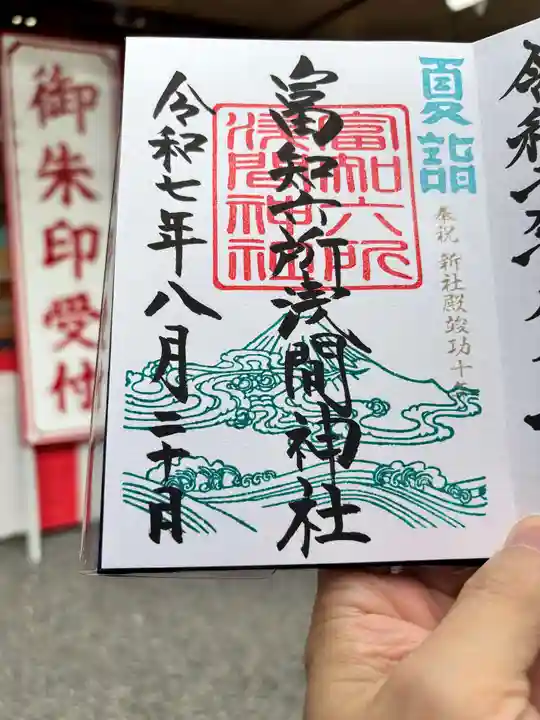 夏詣
奉祝 新社殿竣功十
富知六所浅間神社
富知六所
浅間神社
令和七年八月二十日
御朱印受付